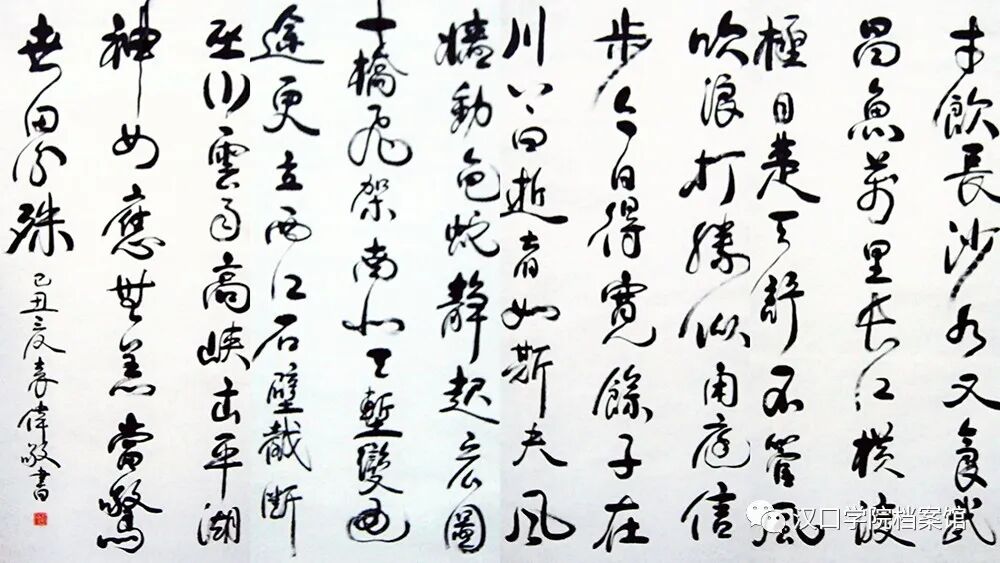 才飲長沙水又食武
昌魚萬里長江橫渡
極目楚天舒不管風
吹浪打勝似閒庭信
步今日得寬餘子在
川上曰逝者如斯夫風
檣動龜蛇靜起宏圖
一橋飛架南北天塹變通
途更立西江石壁截斷
巫山雲雨高峽出平湖
神女應無恙當驚
世界殊
己丑之夏袁偉敬書
汉口学院档案馆